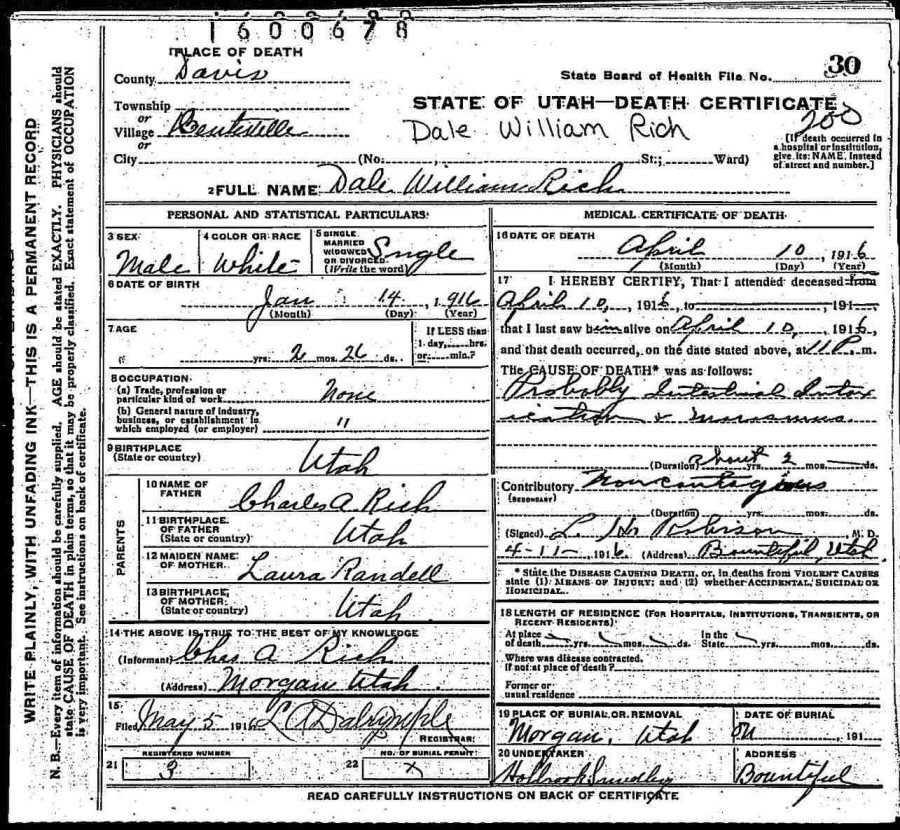 1600678
PLACE OF DEATH
County Davis
State Board of Health File No. 30
Township
or
Village Centerville
or
STATE OF UTAH—DEATH CERTIFICATE
200
Dale William Rich
City (No. St.; Ward)
[If death occurred in a hospital or institution, give its NAME, instead of street and number.]
2 FULL NAME Dale William Rich
PERSONAL AND STATISTICAL PARTICULARS
3 SEX
Male
4 COLOR OR RACE
White
5 SINGLE
MARRIED
WIDOWED
OR DIVORCED
(Write the word)
Single
6 DATE OF BIRTH
Jan 14 1916
(Month) (Day) (Year)
7 AGE
yrs. 2 mos. 26 ds.
If LESS than
1 day, hrs.
or min.?
8 OCCUPATION
(a) Trade, profession or
particular kind of work None
(b) General nature of industry,
business, or establishment in
which employed (or employer) "
9 BIRTHPLACE
(State or country) Utah
PARENTS
10 NAME OF
FATHER Charles A Rich
11 BIRTHPLACE
OF FATHER
(State or country) Utah
12 MAIDEN NAME
OF MOTHER Laura Randell
13 BIRTHPLACE
OF MOTHER
(State or country) Utah
14 THE ABOVE IS TRUE TO THE BEST OF MY KNOWLEDGE
(Informant) Chas A Rich
(Address) Morgan Utah
15
Filed May 5 1916 L A Dalrymple
REGISTRAR
REGISTERED NUMBER
21 3
NO. OF BURIAL PERMIT
22 X
MEDICAL CERTIFICATE OF DEATH
16 DATE OF DEATH
April 10, 1916
(Month) (Day) (Year)
17 I HEREBY CERTIFY, That I attended deceased from
April 10, 1916, to 191
that I last saw him alive on April 10, 1916,
and that death occurred, on the date stated above, at 11 P. m.
The CAUSE OF DEATH* was as follows:
Probably Intestinal Intox
ication & marasmus
(Duration) about yrs. 2 mos. ds.
Contributory Non contagious
(SECONDARY)
(Duration) yrs. mos. ds.
(Signed) L. Robison M. D.
4-11- 1916 (Address) Bountiful, Utah
* State the DISEASE CAUSING DEATH, or, in deaths from VIOLENT CAUSES
state (1) MEANS OF INJURY; and (2) whether ACCIDENTAL, SUICIDAL OR
HOMICIDAL.
18 LENGTH OF RESIDENCE (FOR HOSPITALS, INSTITUTIONS, TRANSIENTS, OR
RECENT RESIDENTS)
At place
of death yrs. mos. ds. In the
State yrs. mos. ds.
Where was disease contracted,
if not at place of death?
Former or
usual residence
19 PLACE OF BURIAL OR REMOVAL
Morgan, Utah
DATE OF BURIAL
191
20 UNDERTAKER
Holbrook
ADDRESS
Bountiful
READ CAREFULLY INSTRUCTIONS ON BACK OF CERTIFICATE
WRITE PLAINLY, WITH UNFADING INK—THIS IS A PERMANENT RECORD
N. B.—Every item of information should be carefully supplied. AGE should be stated EXACTLY. PHYSICIANS should
state CAUSE OF DEATH in plain terms, so that it may be properly classified. Exact statement of OCCUPATION
is very important. See instructions on back of certificate.